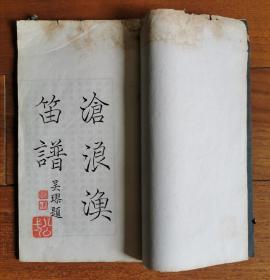 滄浪漁
笛譜
吳璟題